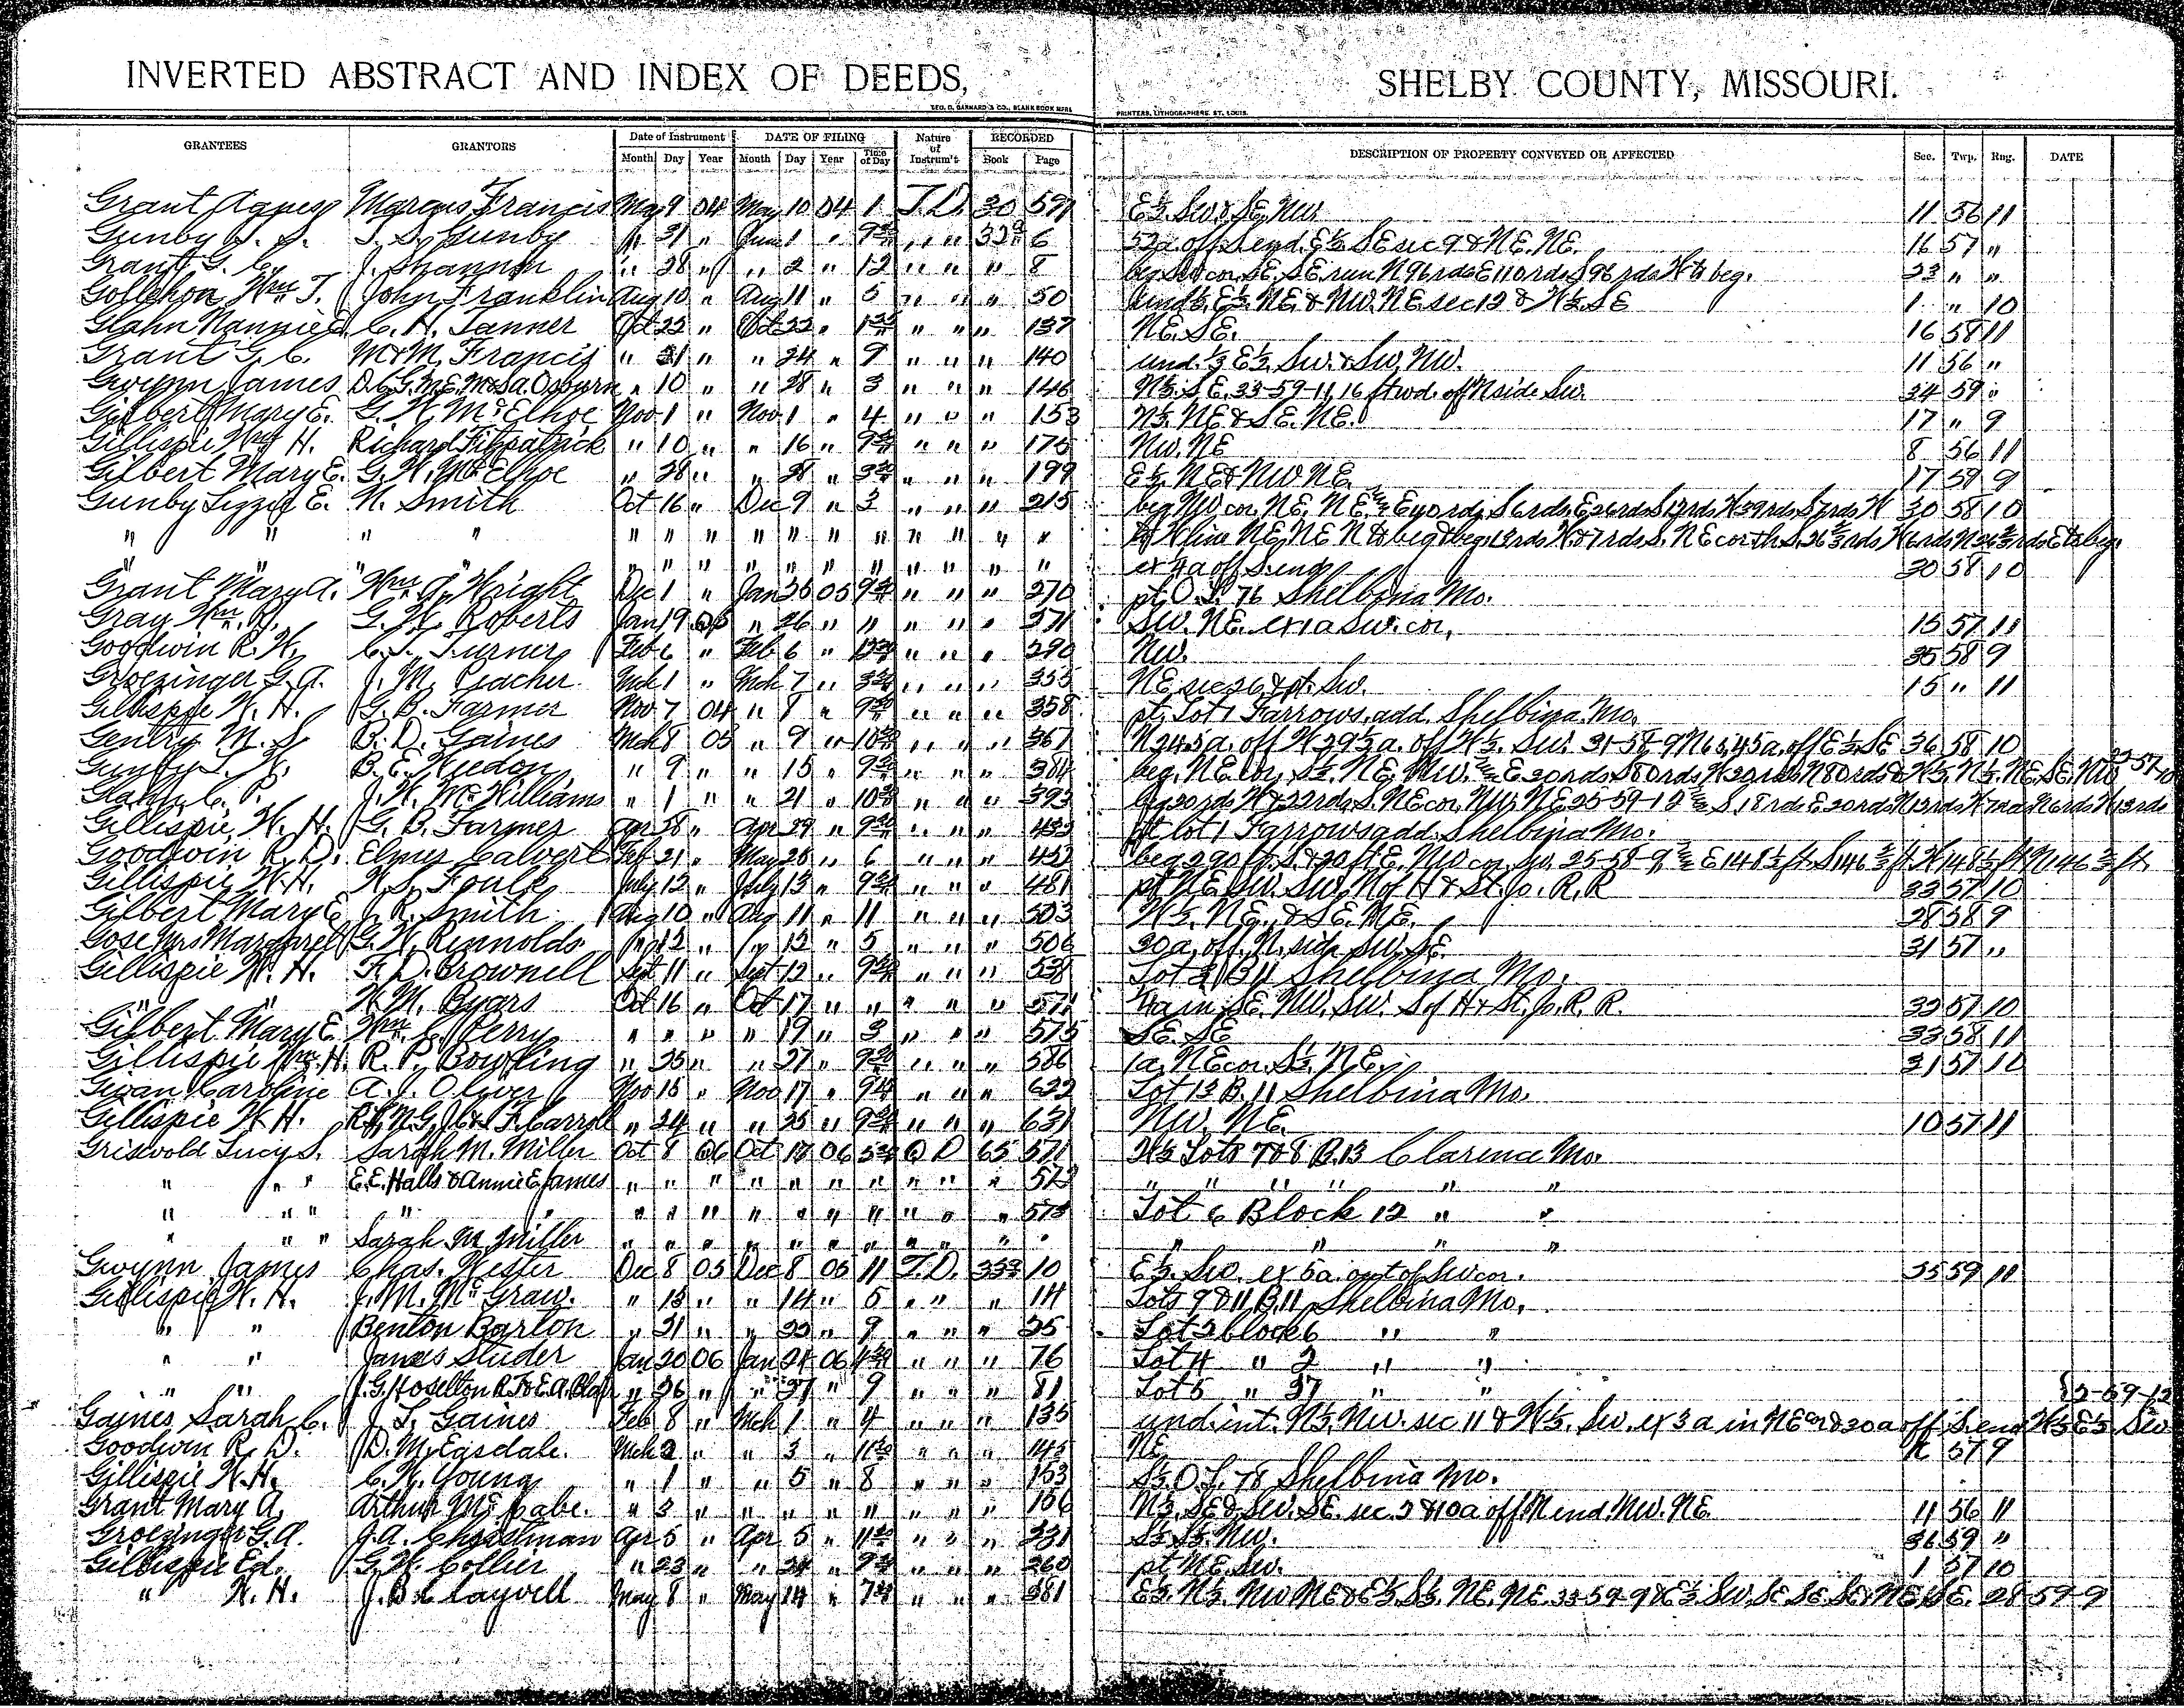 INVERTED ABSTRACT AND INDEX OF DEEDS, SHELBY COUNTY, MISSOURI.
GEO. D. BARNARD & CO., BLANK BOOK MFRS. PRINTERS, LITHOGRAPHERS, ST. LOUIS.
GRANTEES GRANTORS Date of Instrument DATE OF FILING Nature of Instrum't RECORDED DESCRIPTION OF PROPERTY CONVEYED OR AFFECTED Sec. Twp. Rng. DATE
Month Day Year Month Day Year Time of Day Book Page
Grant Agnes Marcus Francis May 9 04 May 10 04 1 T.D. 30 591 E½ Sw & SE. Nw. 11 56 11
Gunby J. S. T. S. Gunby " 31 " June 1 " 9 " " 32 6 52a. off S. end. E½ SE sec 9 & NE. NE. 16 57 "
Grant G. C. J. Shannon " 28 " " 2 " 12 " " " 8 beg Sw cor. SE. SE run N 96 rds E 110 rds S 96 rds W to beg. 23 " "
Gollehon Wm T. John Franklin Aug 10 " Aug 11 " 5 " " " 50 und ½ E½ NE & Nw. NE sec 12 & W½ SE 1 " 10
Glahn Nannie E. C. H. Tanner Oct 22 " Oct 22 " " " " 137 NE. SE. 16 58 11
Grant G. C. W & M. Francis " 21 " " 24 " 9 " " " 140 und. ⅓ E½ Sw. & Sw. Nw. 11 56 "
Gwynn James D.C.G.M.E.M & S.A. Osburn " 10 " " 28 " 3 " " " 146 N½. SE. 33-59-11, 16 ft wd. off N side Sw. 34 59 "
Gilbert Mary E. G. W. McElhoe Nov 1 " Nov 1 " 4 " " " 153 N½. NE & SE. NE. 17 " 9
Gillispie Wm H. Richard Fitzpatrick " 10 " " 16 " 9 " " " 175 Nw. NE 8 56 11
Gilbert Mary E. G. W. McElhoe " 28 " " 28 " 3 " " " 199 E½. NE & NW NE. 17 59 9
Gunby Lizzie E. N. Smith Oct 16 " Dec 9 " 3 " " " 215 beg Nw cor. NE. NE. E 40 rds S 6 rds E 26 rds S 12 rds W 39 rds S 7 rds W 30 58 10
" " " " " " " " " " " " " " " to W line NE. NE N to beg & beg. 12 rds W. & 7 rds S. NE cor th S. 26⅔ rds W 6 rds N 26⅔ rds E to beg.
" " " " " " " " " " " " " ex 4a off S. end 30 58 10
Grant Mary A. Wm. A. Wright Dec 1 " Jan 26 05 9 " " " 270 pt. O. L. 76 Shelbina Mo.
Gray Wm. R. G. W. Roberts Jan 19 05 " 26 " 11 " " " 271 Sw. NE. ex 1a Sw. cor. 15 57 11
Goodwin R. W. C. S. Turner Feb 6 " Feb 6 " " " " 290 Nw. 35 58 9
Groezinger G. A. J. M. Peacher Mch 1 " Mch 7 " 3 " " " 355 NE sec 26 & pt. Sw. 15 " 11
Gillispie W. H. G. B. Farmer Nov 7 04 " 8 " 9 " " " 358 pt. Lot 1 Farrows add. Shelbina Mo.
Gentry M. S. B. D. Gaines Mch 8 05 " 9 " 10 " " " 361 N 24.5a. off W 29.5a. off W½. Sw. 31-58-9 N 65.45a. off E½ SE 36 58 10
Gunby L. W. B. E. " 9 " " 15 " 9 " " " 384 beg. NE cor. S½. NE. Nw. E 20 rds S 80 rds W 20 rds N 80 rds & W½. N½. NE. SE. Nw 57
Glahn C. P. J. W. McWilliams " 1 " " 21 " 10 " " " 393 beg 20 rds W & 22 rds S. NE cor. Nw. NE 25-59-12 S. 18 rds E 20 rds N 13 rds W 7 rds N 6 rds W 13 rds
Gillispie W. H. G. B. Farmer Apr 28 " Apr 29 " 9 " " " 433 pt lot 1 Farrows add. Shelbina Mo.
Goodwin R. D. Elmer Calvert Feb 21 " May 25 " 6 " " " 452 beg 290 ft. S & 20 ft E. Nw cor. Sw. 25-58-9, E 148½ ft. S 146⅔ ft. W 148½ ft N 146⅔ ft.
Gillispie W. H. W. S. Foulk July 12 " July 13 " 9 " " " 481 pt NE Sw. Sw. N of H & St. Jo. R. R 33 57 10
Gilbert Mary E J. R. Smith Aug 10 " Aug 11 " 11 " " " 503 W½. NE. & SE. NE. 28 58 9
Gose Mrs Margaret G. W. Reynolds " 12 " " 12 " 5 " " " 506 30a. off. N. side Sw. SE. 31 57 "
Gillispie W. H. F. D. Brownell Sept 11 " Sept 12 " 9 " " " 538 Lot 2 B 11 Shelbina Mo.
" " W. M. Byars Oct 16 " Oct 17 " " " " " 571 in SE. NW. Sw. S of H & St. Jo. R. R. 33 57 10
Gilbert Mary E Wm. Perry " " " " 19 " 3 " " " 575 SE. SE 33 58 11
Gillispie Wm. H. R. P. Bowling " 25 " " 27 " 9 " " " 586 1a. NE cor. S½. NE. 31 57 10
Gwan Caroline A. J. Oliver Nov 15 " Nov 17 " 9 " " " 622 Lot 13 B. 11 Shelbina Mo.
Gillispie W. H. F. Carroll " 24 " " 25 " 9 " " " 631 NW. NE. 10 57 11
Griswold Lucy S. Sarah M. Miller Oct 8 06 Oct 17 06 5 Q D 65 571 W½ Lots 7 & 8 B. 13 Clarence Mo.
" " " E. E. Halls & Annie E James " " " " " " " " " " 572 " " " " " "
" " " " " " " " " " " " " " " 573 Lot 6 Block 12 " "
" " " Sarah M. Miller " " " " " " " " " " " " " " "
Gwynn James Chas. Hester Dec 8 05 Dec 8 05 11 T.D. 333 10 E½. Sw. ex 5a. out of Sw cor. 35 59 11
Gillispie W. H. J. M. McGraw. " 13 " " 14 " 5 " " " 14 Lots 9 & 11 B. 11 Shelbina Mo.
" " Benton Barton " 21 " " 22 " 9 " " " 25 Lot 2 block 6 " "
" " James Studer Jan 20 06 Jan 24 06 4 " " " 76 Lot 4 " 2 " "
" " J. G. Hoselton " 26 " " 27 " 9 " " " 81 Lot 5 " 37 " "
Gaines Sarah C. J. L. Gaines Feb 8 " Mch 1 " 4 " " " 135 und. int. N½. Nw. sec 11 & W½. Sw. ex 3a in NE cor & 30a off S. end W½ E½ Sw 2-59-12
Goodwin R. D. D. M. Eagsdale. Mch 2 " " 3 " 11 " " " 145 NE 57 9
Gillispie W. H. C. W. Young " 1 " " 5 " 8 " " " 153 S½. O. L. 78 Shelbina Mo.
Grant Mary A. Arthur McCabe. " 3 " " " " " " " " 156 N½. SE & Sw. SE. sec. 2 & 10a off N end. Nw. NE. 11 56 11
Groezinger G. A. J. A. Chessman Apr 5 " Apr 5 " 11 " " " 231 S½ S½. NW. 36 59 "
Gillispie Ed. G. W. Collier " 23 " " 24 " 9 " " " 260 pt. NE. Sw. 1 57 10
" W. H. J. B. Claywell May 8 " May 14 " 7 " " " 281 E½. N½. NW NE & E½. S½. NE. NE. 33-59-9 & E½. Sw. SE SE. SE & NE. SE. 28 59-9